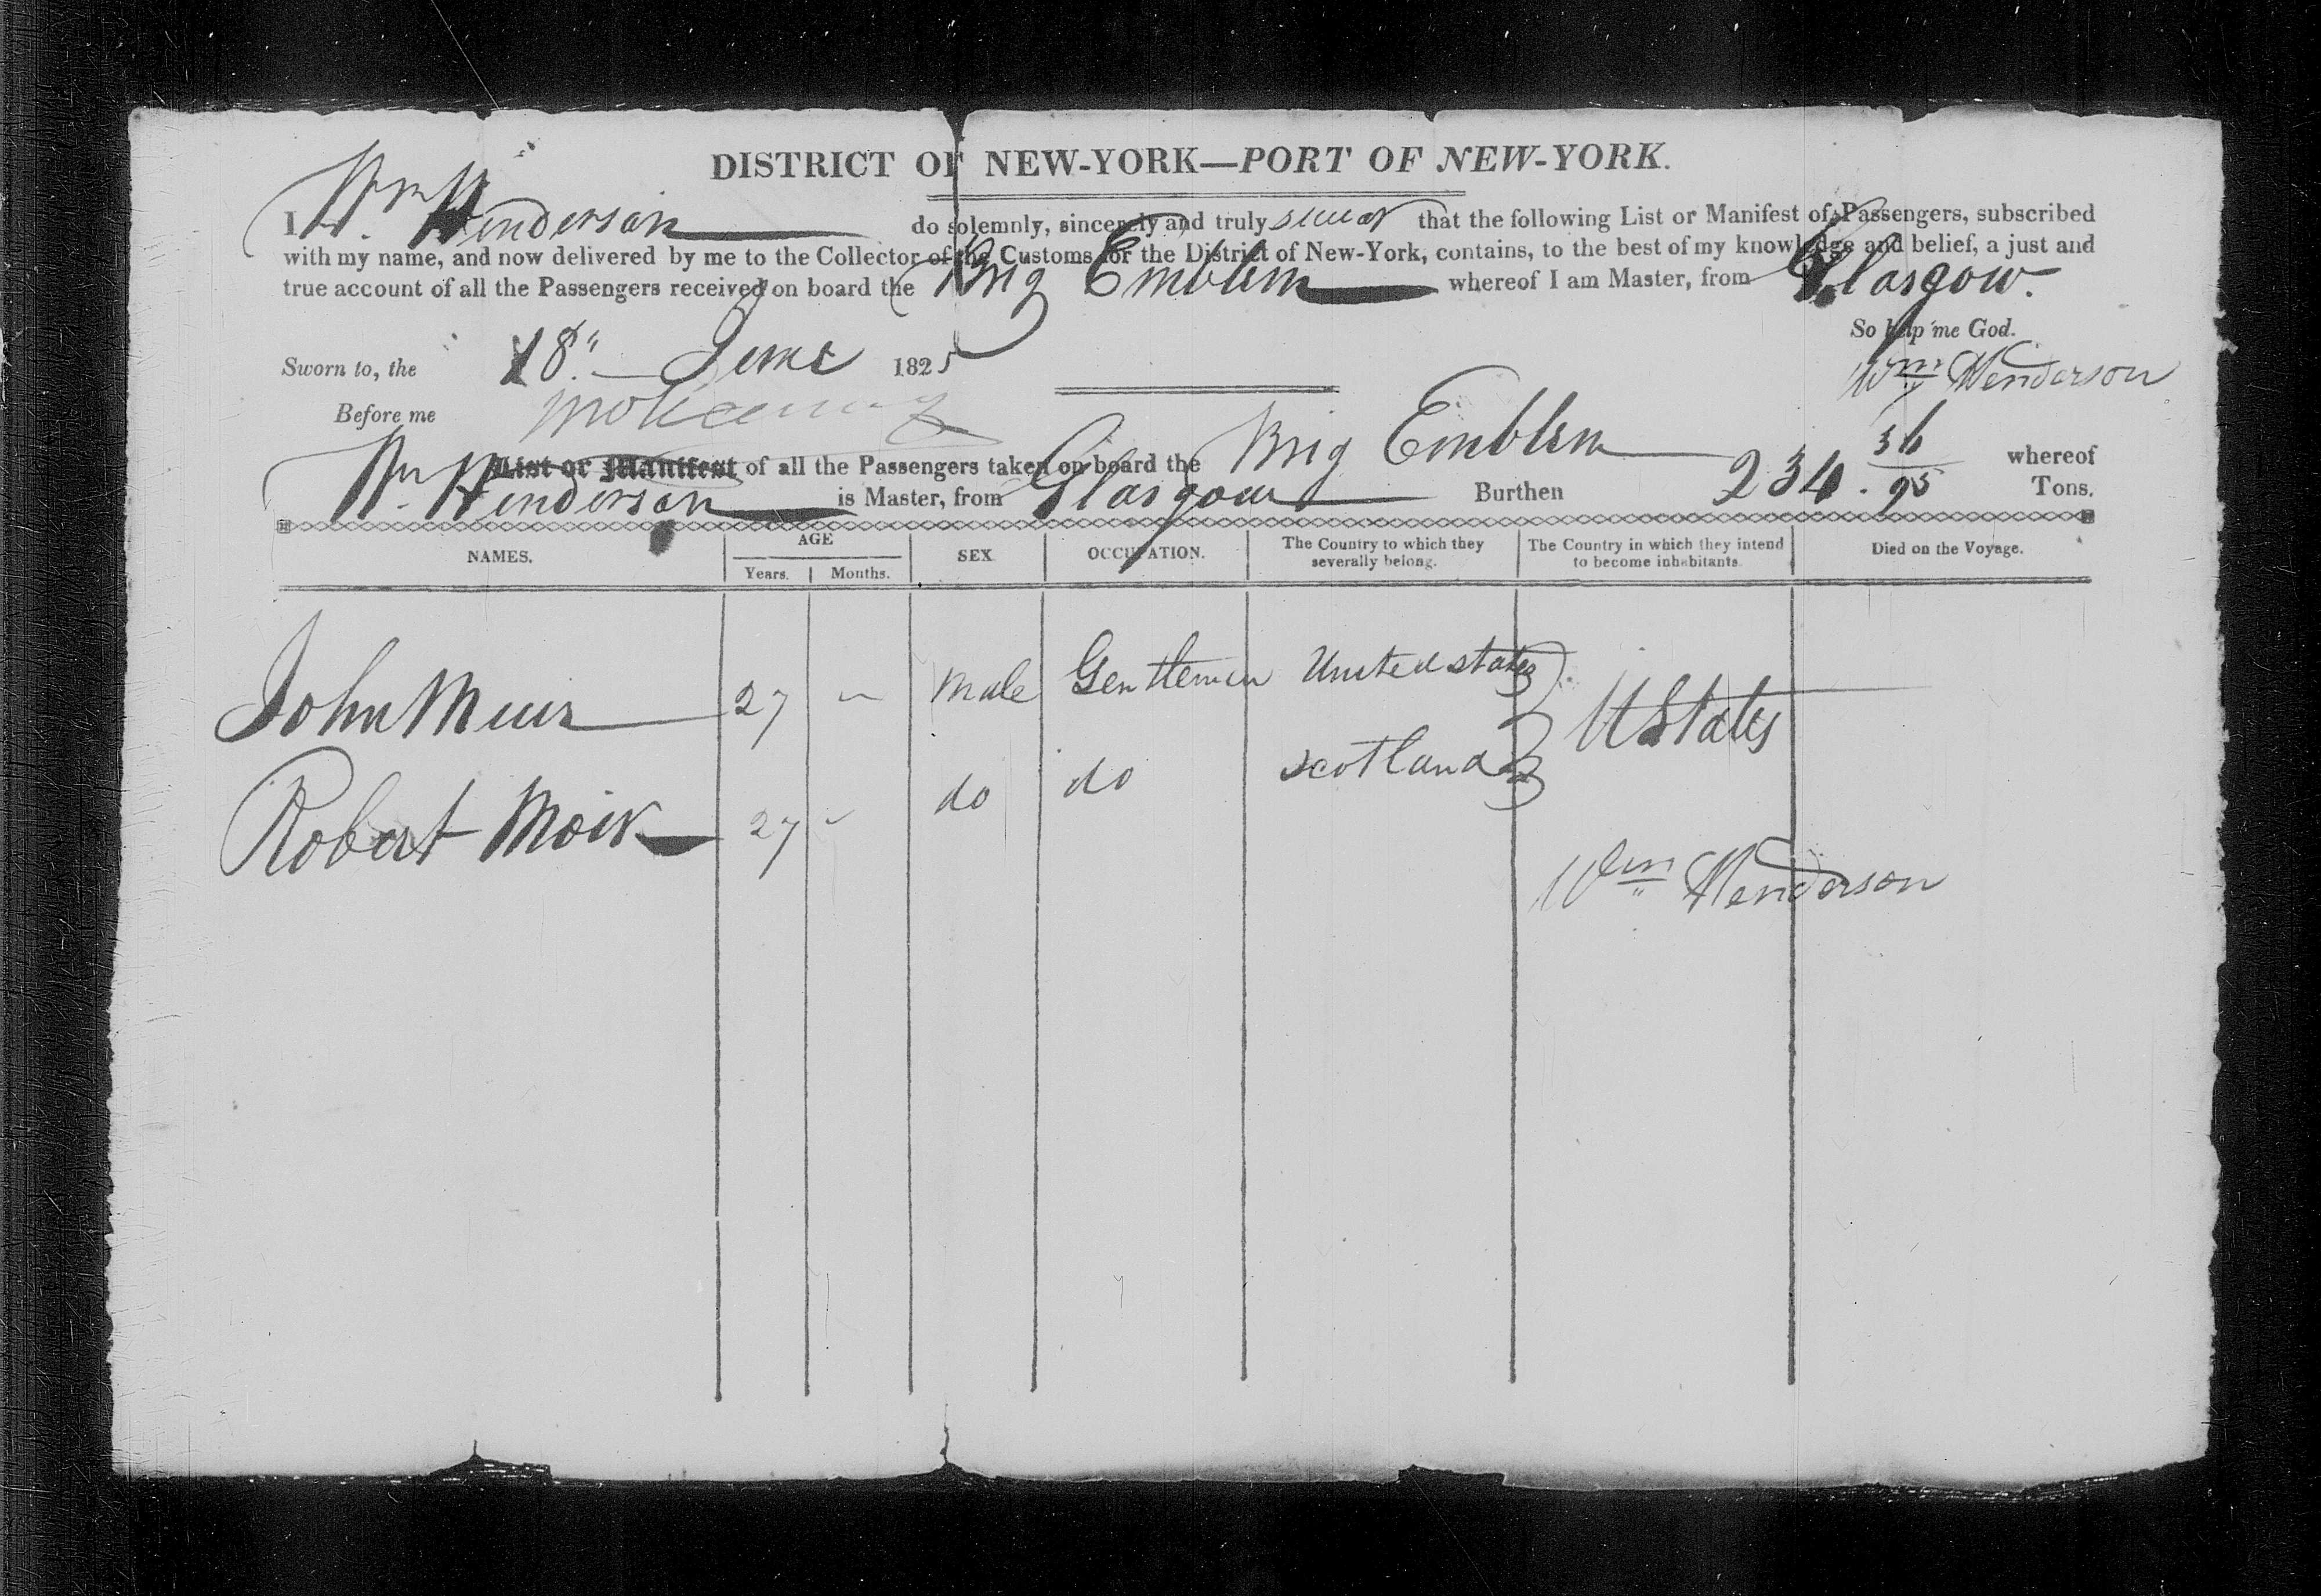 DISTRICT OF NEW-YORK—PORT OF NEW-YORK.
I Wm. Henderson do solemnly, sincerely and truly swear that the following List or Manifest of Passengers, subscribed
with my name, and now delivered by me to the Collector of the Customs for the District of New-York, contains, to the best of my knowledge and belief, a just and
true account of all the Passengers received on board the Brig Emblem whereof I am Master, from Glasgow.
So help me God.
Sworn to, the 18" June 1825
Wm Henderson
Before me
List or Manifest of all the Passengers taken on board the Brig Emblem whereof
Wm Henderson is Master, from Glasgow Burthen 234. 36/95 Tons.
NAMES. AGE SEX OCCUPATION. The Country to which they severally belong. The Country in which they intend to become inhabitants. Died on the Voyage.
Years. Months.
John Muir 27 male Gentleman United states U States
Robert Moir 27 do do scotland
Wm Henderson